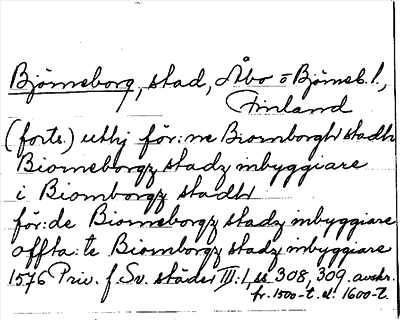 Björneborg, stad, Åbo o Björneb. l.,
Finland
(forts.) uthj för:ne Biornborghz stadh
Biorneborgz stadz inbyggiare
i Biornborgz stadh
för:de Biorneborgz stadz inbyggiare
offta:te Biornborgz stadz inbyggiare
1576 Priv. f. Sv. städer III:1, s. 308, 309. avskr.
fr. 1500-t. el. 1600-t.